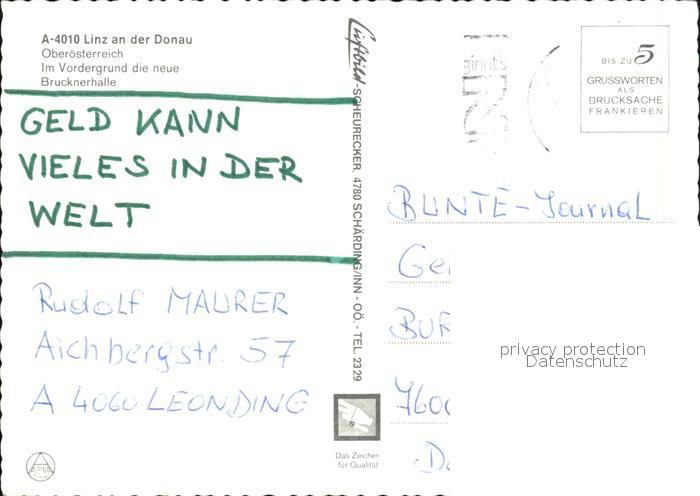 A-4010 Linz an der Donau
Oberösterreich
Im Vordergrund die neue
Brucknerhalle
GELD KANN
VIELES IN DER
WELT
Rudolf MAURER
Aichbergstr. 57
A 4060 LEONDING
ALPINA
Luftbild-SCHEURECKER, 4780 SCHÄRDING/INN - OÖ. - TEL. 2329
Das Zeichen
für Qualität
BIS ZU 5
GRUSSWORTEN
ALS
DRUCKSACHE
FRANKIEREN
BUNTE-Journal
BUR
760
privacy protection
Datenschutz